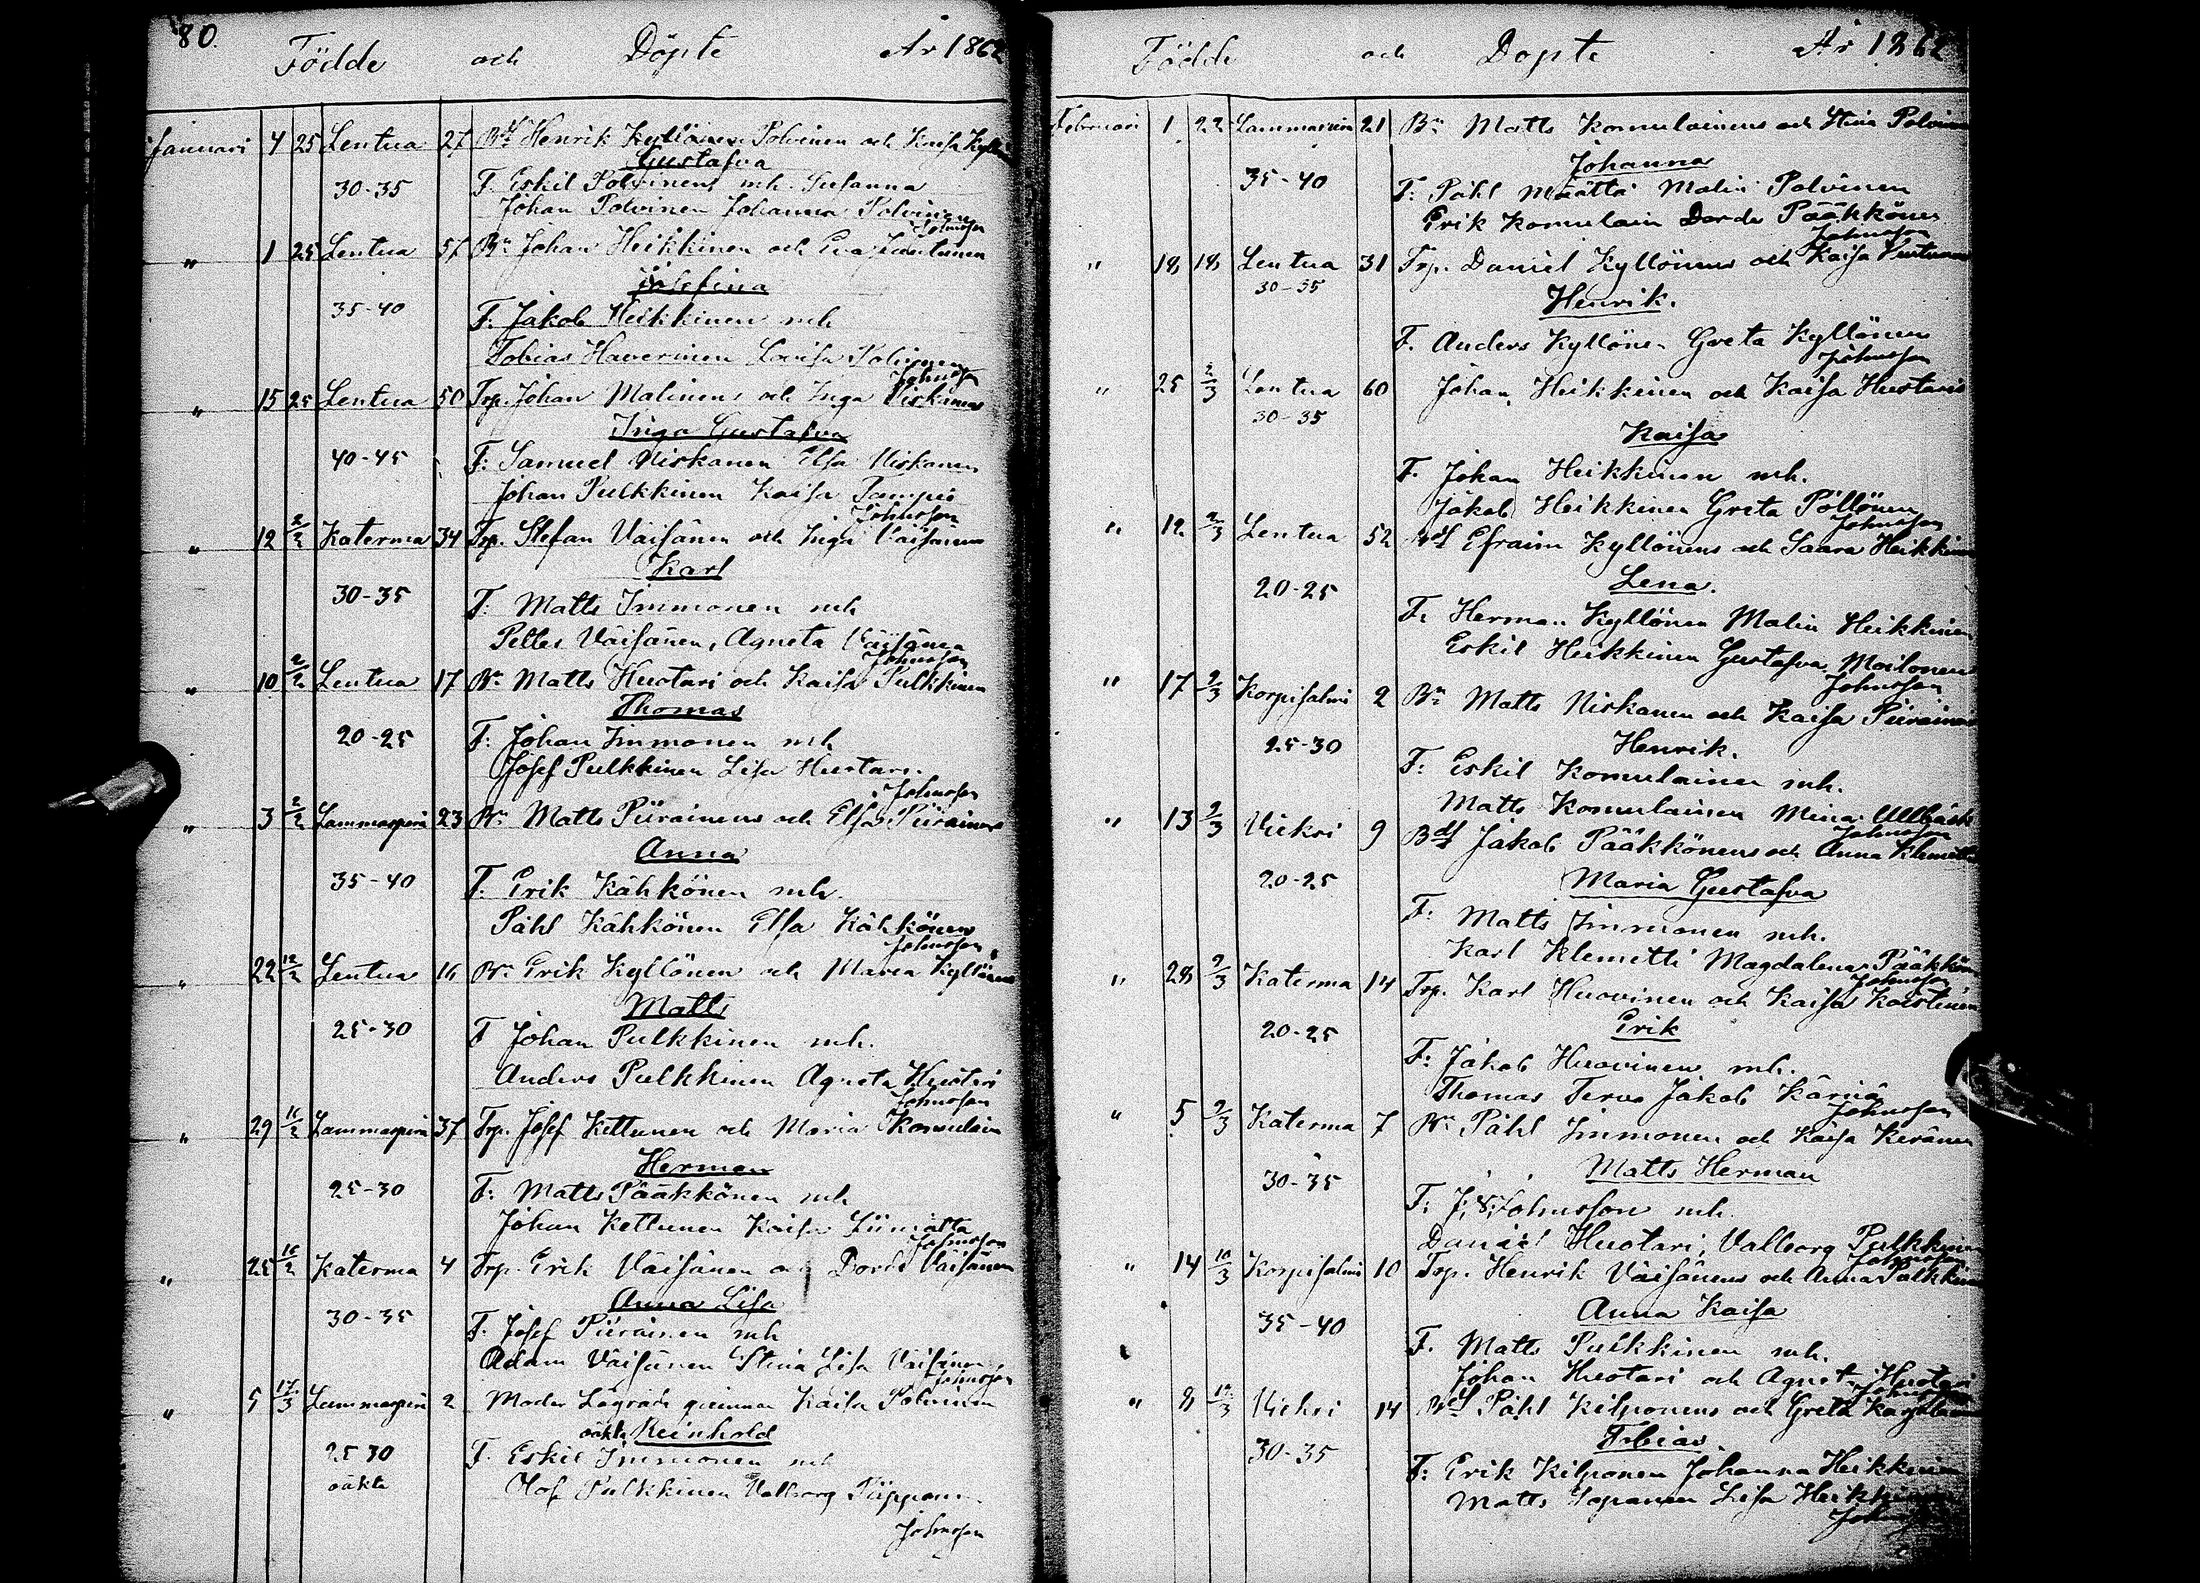 80.
Födde och Döpte År 1862
Januari 4 25 Lentua 27 Henrik Kyllönen Polvinen och Kaisa
Gustafva
30-35 F. Eskil Polvinens mh. Susanna
Johan Polvinen Johanna Polvinen
Johnsson
" 1 25 Lentua 57 Bn Johan Heikkinen och Eva
Josefina
35-40 F: Jakob Heikkinen mh
Tobias Haverinen Lovisa Polvinen
Johnsson
" 15 25 Lentua 50 Trp. Johan Malinens och Inga Niskanen
Inga Gustafva
40-45 F: Samuel Niskanen Elsa Niskanen
Johan Pulkkinen Kaisa
Johnsson
" 12 2/2 Katerma 34 Trp. Stefan Väisänen och Inga Väisänen
Karl
30-35 F: Matts Immonen mh
Pelles Väisänen, Agneta Väisänen
Johnsson
" 10 2/2 Lentua 17 Bn Matts Huotari och Kaisa Pulkkinen
Thomas
20-25 F: Johan Immonen mh
Josef Pulkkinen Lisa Huotari.
Johnsson
" 3 2/2 Lammasperä 23 Bn Matts Piirainens och Elsa Piirainen
Anna
35-40 F. Erik Kähkönen mh.
Påhl Kähkönen Elsa Kähkönen
Johnsson
" 22 12/2 Lentua 16 Bn Erik Kyllönen och Maria Kyllönen
Matts
25-30 F Johan Pulkkinen mh.
Anders Pulkkinen Agneta Huotari
Johnsson
" 29 16/2 Lammasperä 37 Trp. Josef Kettunen och Maria Komulain
Herman
25-30 F: Matts Pääkkönen mh
Johan Kettunen Kaisa Liimatta
Johnsson
" 25 16/2 Katerma 4 Trp. Erik Väisänen och Dorde Väisänen
Anna Lisa
30-35 F. Josef Piirainen mh
Adam Väisänen Stina Lisa Väisänen
Johnsson
" 5 17/3 Lammasperä 2 Moder Lägrade qvinnan Kaisa Polvinen
oäkta Reinhold
25 30 F. Eskil Immonen mh
oäkta Olof Pulkkinen Valborg
Johnsson
Födde och Döpte År 1862
Februari 1 22 Lammasperä 21 Bn Matts Komulainens och Stina Polvinen
Johanna
35-40 F: Påhl Määttä Malin Polvinen
Erik Komulain Dorde Pääkkönen
Johnsson
" 18 18 Lentua 31 Trp. Daniel Kyllönens och Kaisa
30-35 Henrik.
F. Anders Kyllönen Greta Kyllönen
Johnsson
" 25 2/3 Lentua 60 Johan Heikkinen och Kaisa Huotari
30-35 Kaisa
F. Johan Heikkinen mh.
Jakob Heikkinen Greta Pöllönen
Johnsson
" 12 2/3 Lentua 52 Efraim Kyllönens och Saara Heikkinen
20-25 Lena.
F. Herman Kyllönen Malin Heikkinen
Eskil Heikkinen Gustafva Moilanen
Johnsson
" 17 9/3 Korpisalmi 2 Bn Matts Niskanen och Kaisa Piirainen
25-30 Henrik.
F: Eskil Komulainen mh.
Matts Komulainen Mina
Johnsson
" 13 9/3 Vieksi 9 Jakob Pääkkönens och Anna Klemetti
20-25 Maria Gustafva
F: Matts Immonen mh.
Karl Klemetti Magdalena Pääkkönen
Johnsson
" 28 9/3 Katerma 14 Trp. Karl Huovinen och Kaisa Koistinen
20-25 Erik
F: Jakob Huovinen mh.
Thomas Tervo Jakob Kärnä
Johnsson
" 5 9/3 Katerma 7 Bn Påhl Immonen och Kaisa Keränen
30-35 Matts Herman
F: J. Johnsson mh
Daniel Huotari, Valborg Pulkkinen
Johnsson
" 14 10/3 Korpisalmi 10 Trp. Henrik Väisänens och Anna Pulkkinen
35-40 Anna Kaisa
F. Matts Pulkkinen mh.
Johan Huotari och Agneta Huotari
Johnsson
" 8 Vieksi 14 Påhl Kilponens och Greta
30-35 Tobias.
F: Erik Kilponen Johanna Heikkinen
Matts Lisa Heikkinen
Johnsson